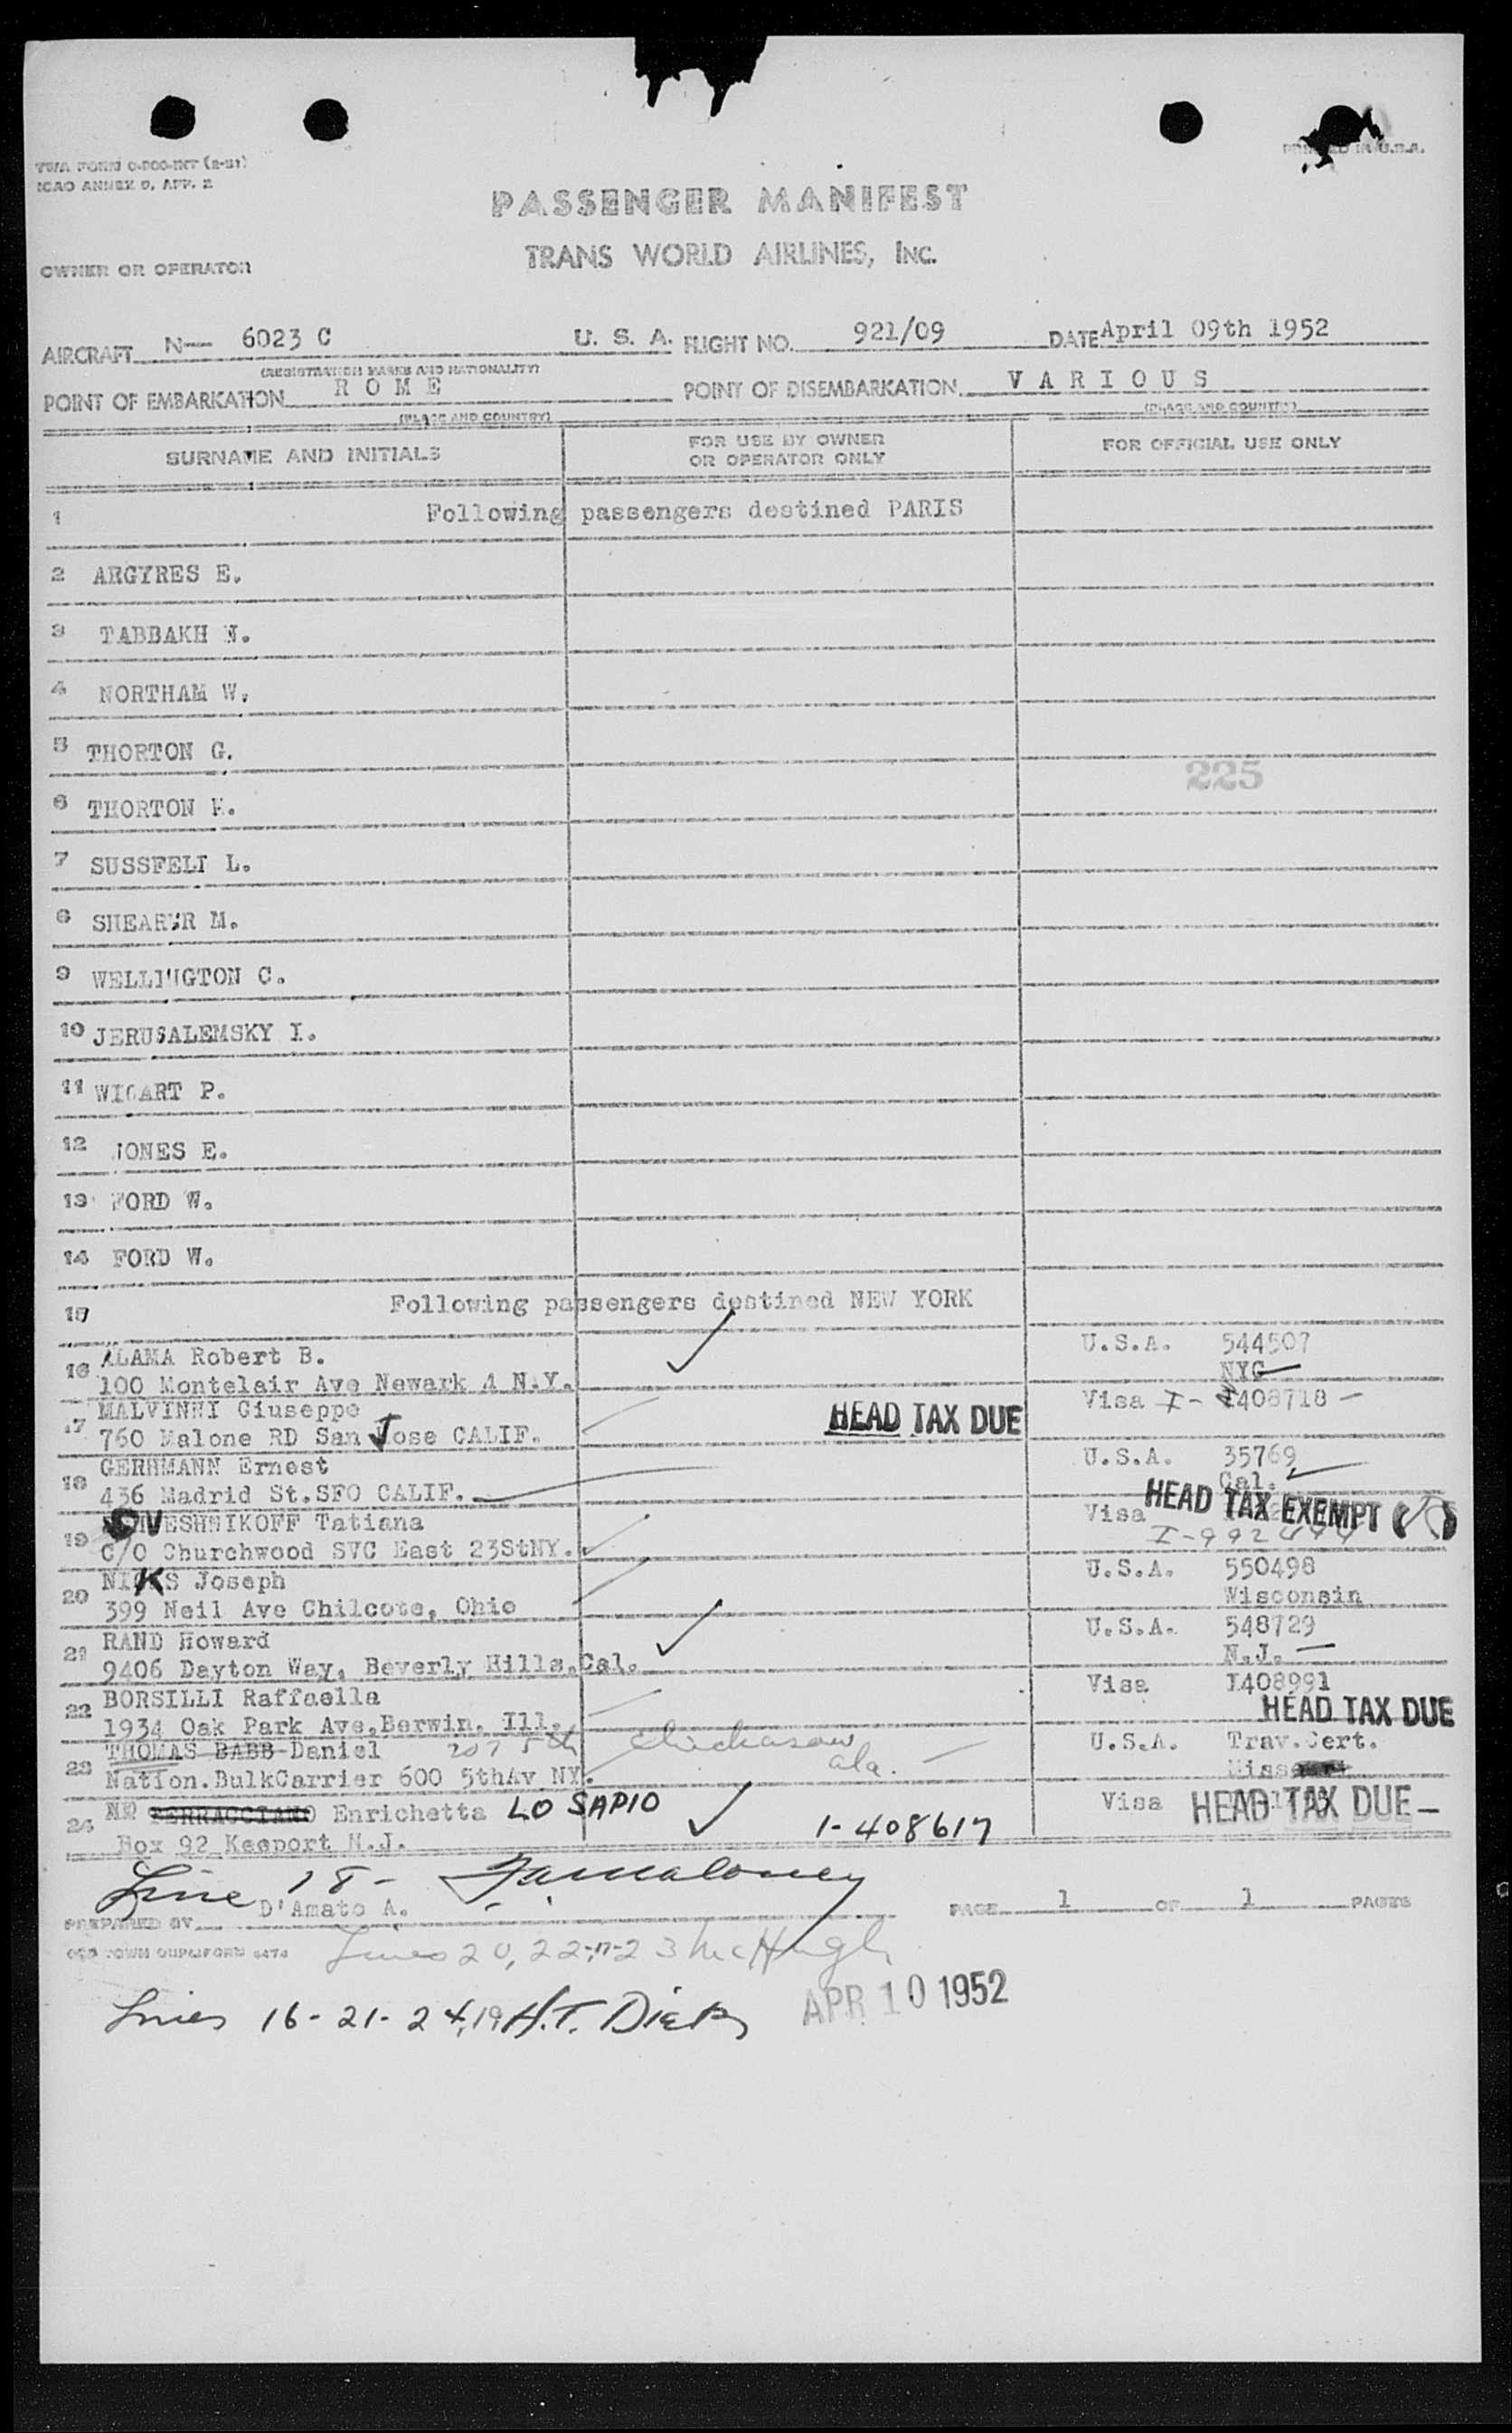 TWA FORM
ICAO ANNEX 9, APP. 2
PRINTED IN U.S.A.
PASSENGER MANIFEST
TRANS WORLD AIRLINES, INC.
OWNER OR OPERATOR
AIRCRAFT N— 6023 C U. S. A. FLIGHT NO. 921/09 DATE April 09th 1952
(REGISTRATION MARKS AND NATIONALITY)
POINT OF EMBARKATION R O M E POINT OF DISEMBARKATION V A R I O U S
(PLACE AND COUNTRY) (PLACE AND COUNTRY)
SURNAME AND INITIALS FOR USE BY OWNER OR OPERATOR ONLY FOR OFFICIAL USE ONLY
1 Following passengers destined PARIS
2 ARGYRES E.
3 TABBAKH N.
4 NORTHAM W.
5 THORTON G.
225
6 THORTON
7 SUSSFELT L.
8 SHEARER M.
9 WELLINGTON C.
10 JERUSALEMSKY I.
11 WIGART P.
12 JONES E.
13 FORD W.
14 FORD W.
15 Following passengers destined NEW YORK
16 ALAMA Robert B. U.S.A. 544507
100 Montelair Ave Newark 4 N.Y. NYC
17 MALVINNI Giuseppe Visa I- 408718 -
760 Malone RD San Jose CALIF. HEAD TAX DUE
18 GERHMANN Ernest U.S.A. 35769
436 Madrid St.SFO CALIF. Cal.
19 ESHNIKOFF Tatiana Visa HEAD TAX EXEMPT
C/O Churchwood SVC East 23StNY. I-992444
20 NIKS Joseph U.S.A. 550498
399 Neil Ave Chilcote, Ohio Wisconsin
21 RAND Howard U.S.A. 548729
9406 Dayton Way, Beverly Hills.Cal. N.J. —
22 BORSILLI Raffaella Visa I408991
1934 Oak Park Ave,Berwin. Ill. HEAD TAX DUE
23 THOMAS BABB Daniel 207 5th Chickasaw U.S.A. Trav.Cert.
Nation.BulkCarrier 600 5thAv NY. Ala. —
24 FERRACCIANO Enrichetta LO SAPIO Visa HEAD TAX DUE -
Box 92 Keeport N.J. 1-408617
Line 18 - Maloney
PREPARED BY D'Amato A. PAGE 1 OF 1 PAGES
Lines 20, 22, 17-23 McHugh
Lines 16-21-24,19 H.T. Dicks APR 10 1952